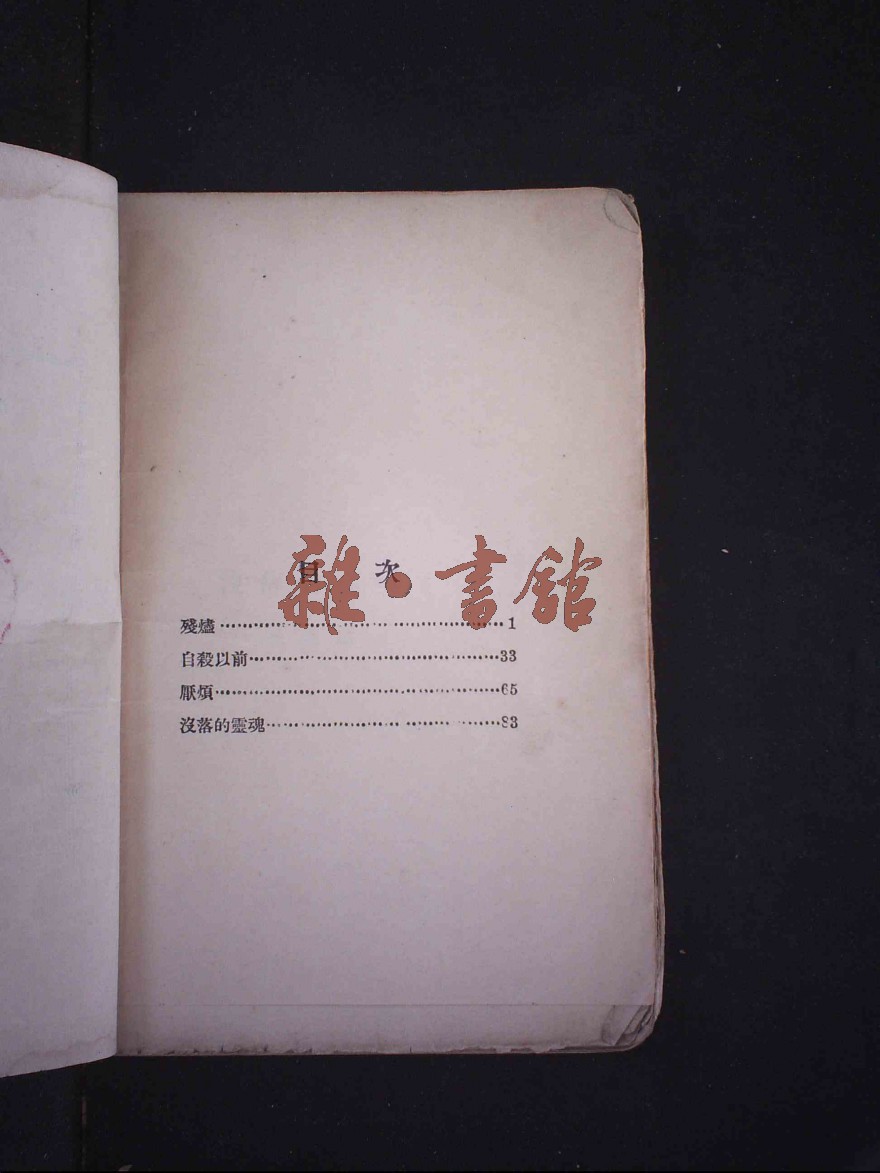 目 次
雜·書館
殘爐……1
自殺以前……33
厭煩……65
沒落的靈魂……83